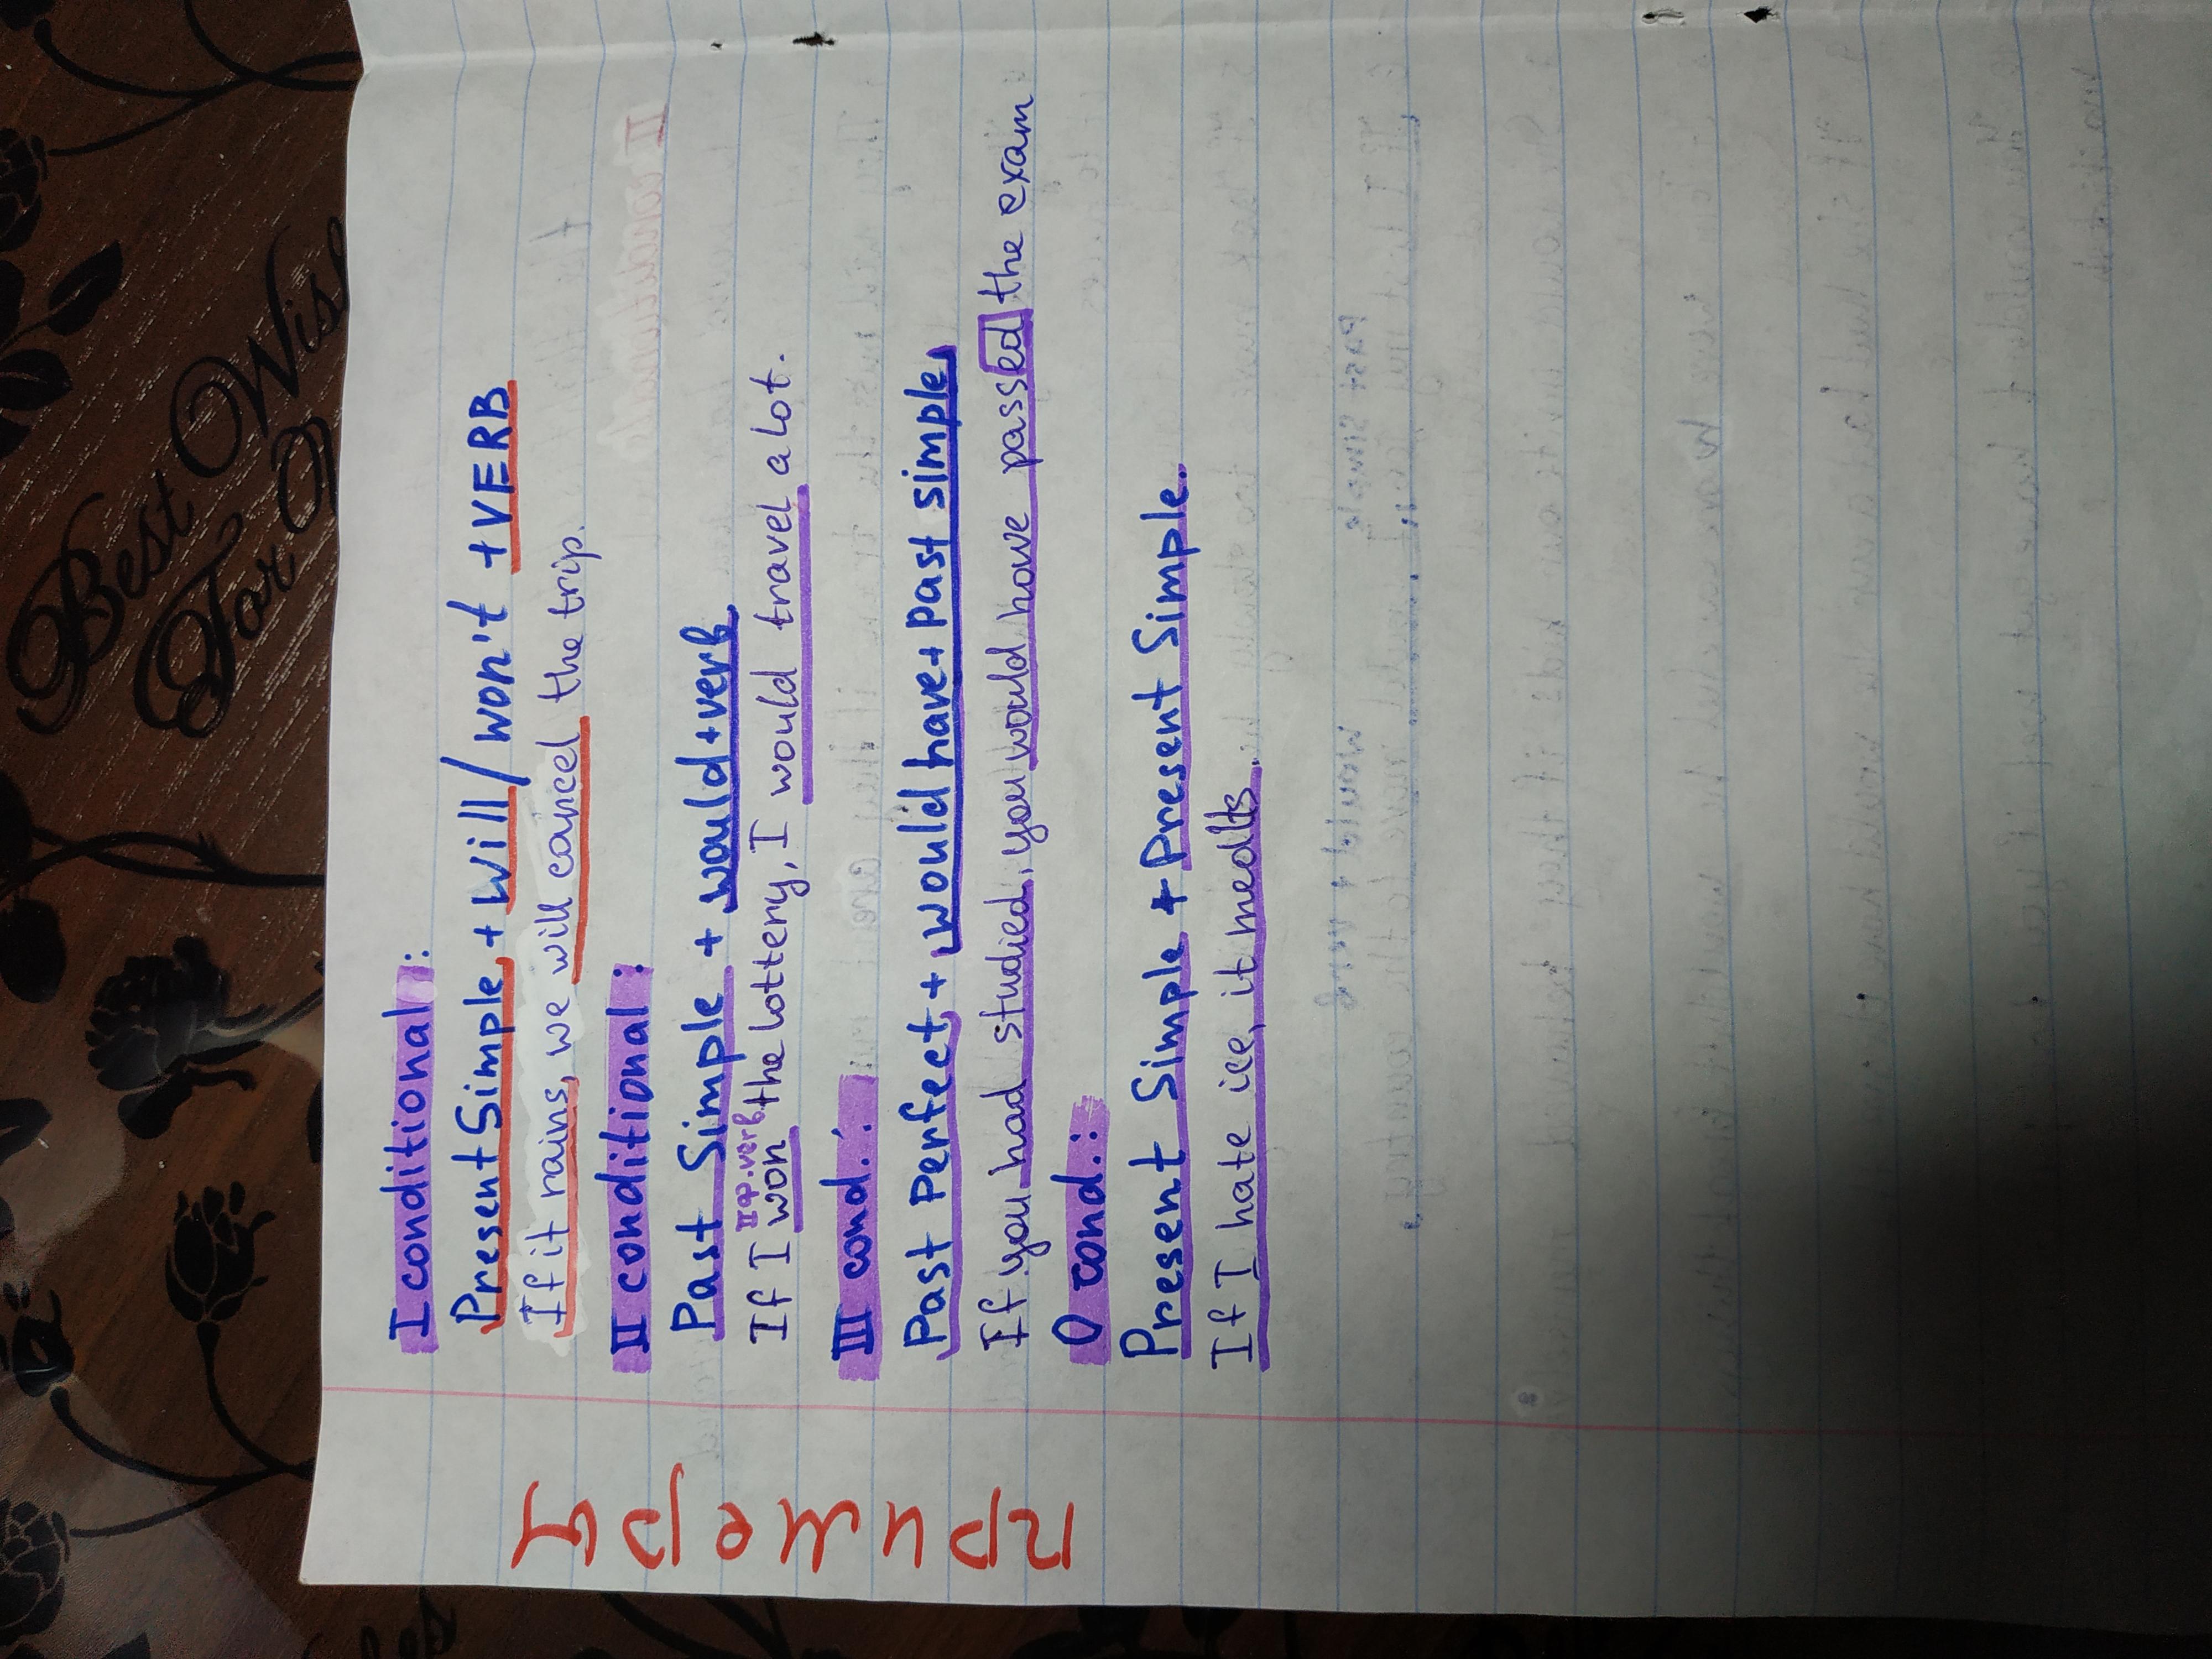 I conditional:
Present Simple + Will / won't + VERB
If it rains, we will cancel the trip.
II conditional:
Past Simple + would + verb
II ф. verb
If I won the lottery, I would travel a lot.
III cond.:
Past Perfect + would have + past simple
If you had studied, you would have passed the exam
0 cond.:
Present Simple + Present Simple.
If I hate ice, it medlts.
Best
For